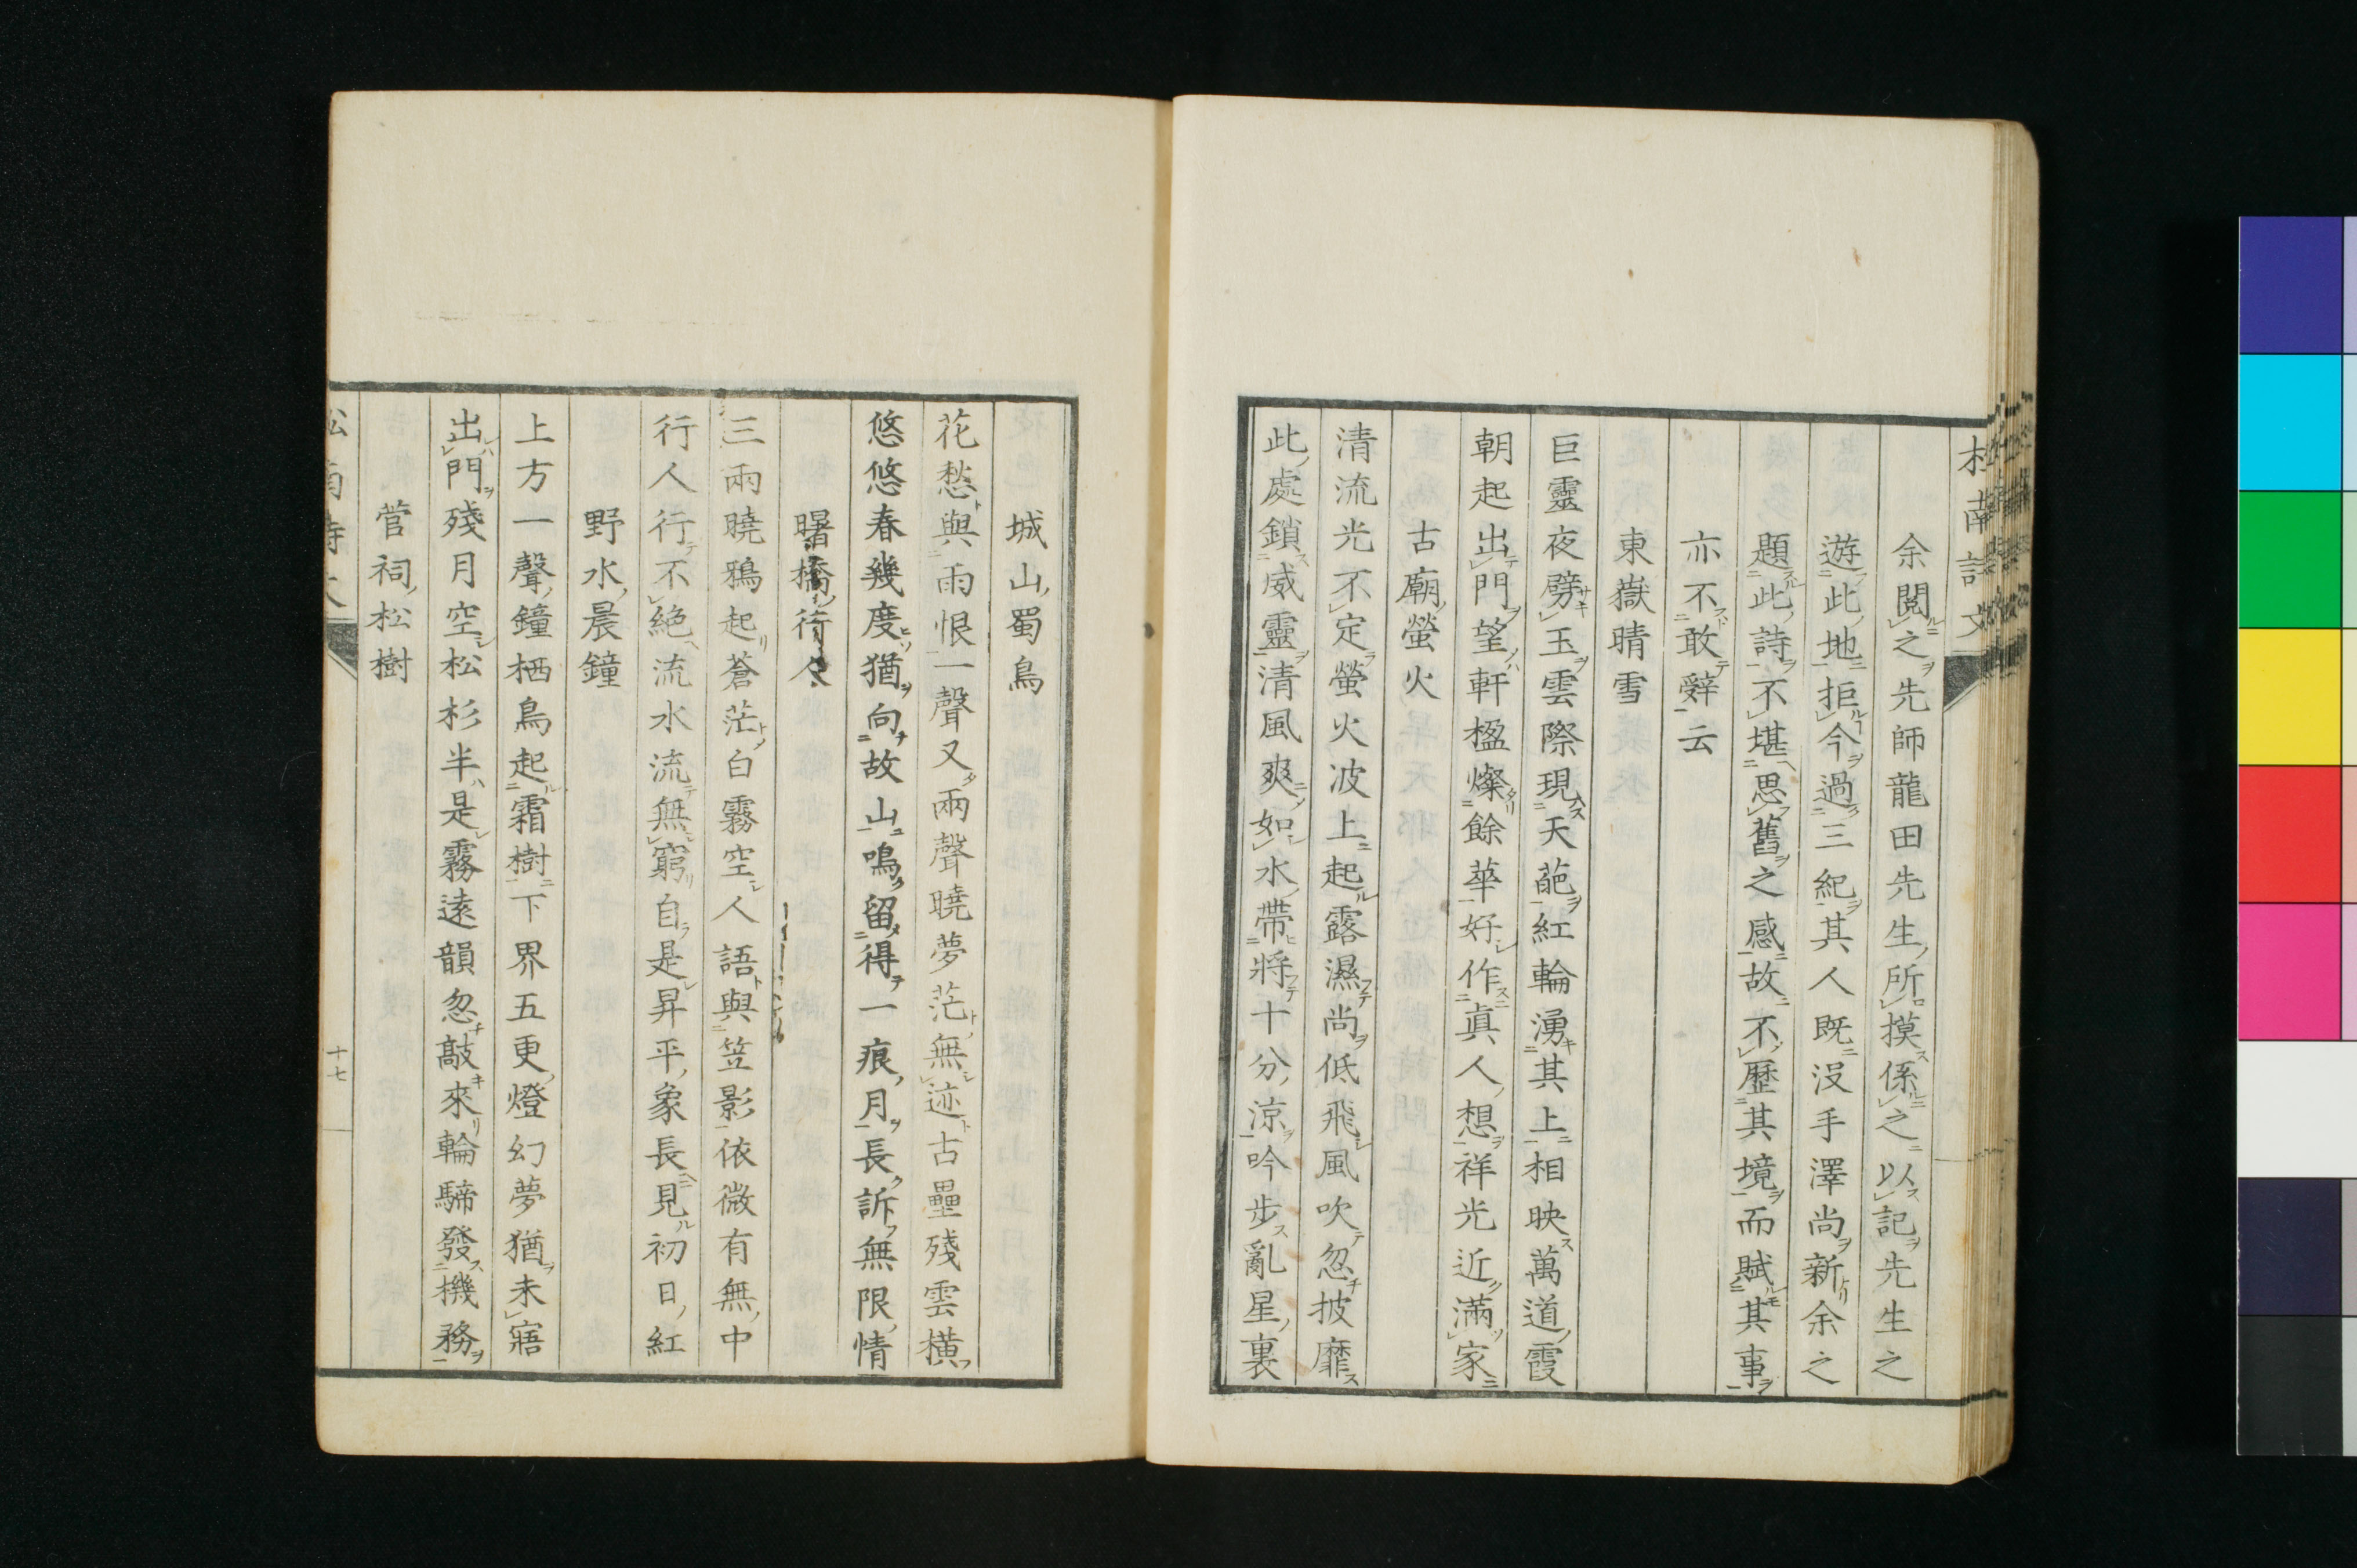 余閲之先師龍田先生所摸係之以記先生之
遊此地拒今過三紀其人既没手澤尚新余之
題此詩不堪思舊之感故不歷其境而賦其事
亦不敢辤云
東嶽晴雪
巨靈夜劈玉雲際現天葩紅輪湧其上相映萬道霞
朝起出門望軒楹燦餘華好作真人想祥光近滿家
古廟螢火
清流光不定螢火波上起露濕尚低飛風吹忽披靡
此處鎖威靈清風爽如水帶將十分涼吟步亂星裏
城山蜀鳥
花愁與雨恨一聲又兩聲曉夢茫無迹古壘殘雲橫
悠悠春幾度猶向故山鳴留得一痕月長訴無限情
曙橋行人
三兩曉鴉起蒼茫白霧空人語與笠影依微有無中
行人行不絶流水流無窮自是昇平象長見初日紅
野水晨鐘
上方一聲鐘栖鳥起霜樹下界五更燈幻夢猶未寤
出門殘月空松杉半是霧遠韻忽敲來輪蹄發機務
菅祠松樹
十七